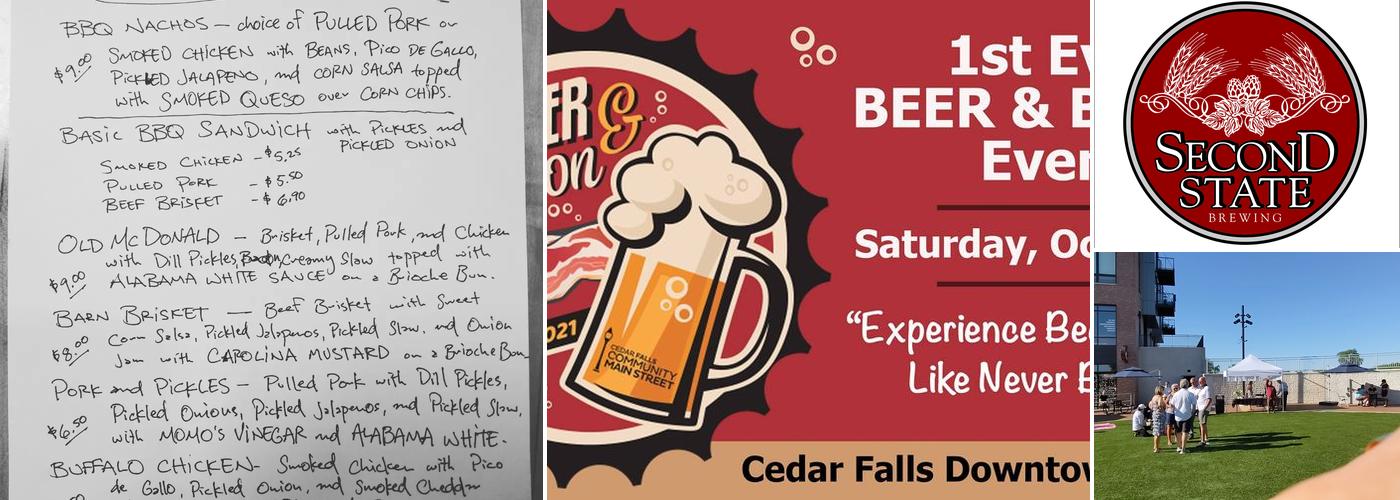 BBQ NACHOS — choice of PULLED PORK or
$9.00 SMOKED CHICKEN with BEANS, PICO DE GALLO,
PICKLED JALAPENO, and CORN SALSA topped
with SMOKED QUESO over CORN CHIPS.
BASIC BBQ SANDWICH with PICKLES and
PICKLED ONION
SMOKED CHICKEN - $5.25
PULLED PORK - $5.50
BEEF BRISKET - $6.90
OLD McDONALD — Brisket, Pulled Pork, and Chicken
with Dill Pickles, Creamy Slaw topped with
$9.00 ALABAMA WHITE SAUCE on a Brioche Bun.
BARN BRISKET — Beef Brisket with Sweet
Corn Salsa, Pickled Jalopenos, Pickled Slaw, and Onion
$8.00 Jam with CAROLINA MUSTARD on a Brioche Bun
PORK and PICKLES — Pulled Pork with Dill Pickles,
Pickled Onions, Pickled Jalopenos, and Pickled Slaw,
$6.50 with MOMO'S VINEGAR and ALABAMA WHITE.
BUFFALO CHICKEN - Smoked Chicken with Pico
de Gallo, Pickled Onion, and Smoked Cheddar
ER &
on
2021
CEDAR FALLS
COMMUNITY
MAIN STREET
1st Ev
BEER & B
Even
Saturday, Oc
"Experience Bee
Like Never B
Cedar Falls Downtow
SECOND
STATE
BREWING